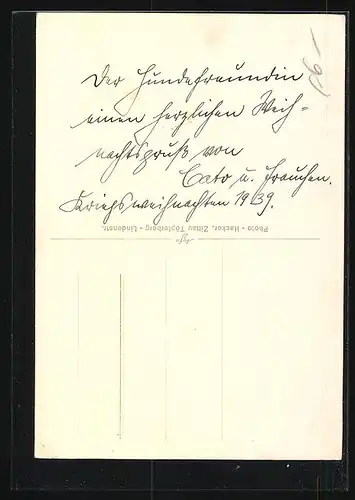 Der Hundefreundin
einen herzlichen Weih=
nachtsgruß von
Cato u. Frauchen.
Kriegsweihnachten 1939.
Photo - Hacker, Zittau Töpferberg - Lindenstr.
Agfa